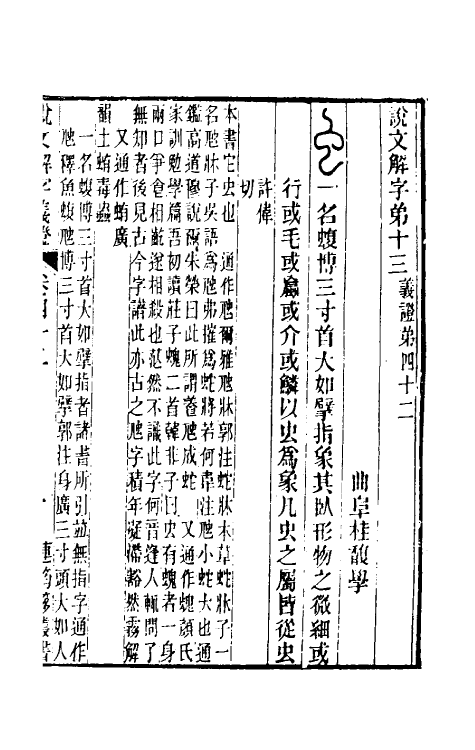 說文解字弟十三 義證弟四十二
曲阜桂馥學
一名蝮博三寸首大如擘指象其臥形物之微細或
行或毛或蠃或介或鱗以虫爲象凡虫之屬皆從虫
許偉
切
本書它虫也 通作虺爾雅虺牀郭注蛇牀本草蛇牀子一
名虺牀子吳語爲虺弗摧爲蛇將若何韋注虺小蛇大也通
鑑高道穆說爾朱榮曰此所謂養虺成蛇 又通作螝顏氏
家訓勉學篇吾初讀莊子螝二首韓非子曰虫有螝者一身
兩口爭食相齕遂相殺也茫然不識此字何音逢人輒問了
無知者後見古今字譜此亦古之虺字積年凝滯豁然霧解
又通作蛕廣
韻土蛕毒蟲
一名蝮博三寸首大如擘指者諸書所引竝無指字通作
虺釋魚蝮虺博三寸首大如擘郭注身廣三寸頭大如人
說文解字義證 卷四十二 一 連筠簃叢書